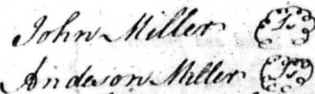 John Miller
Anderson Miller